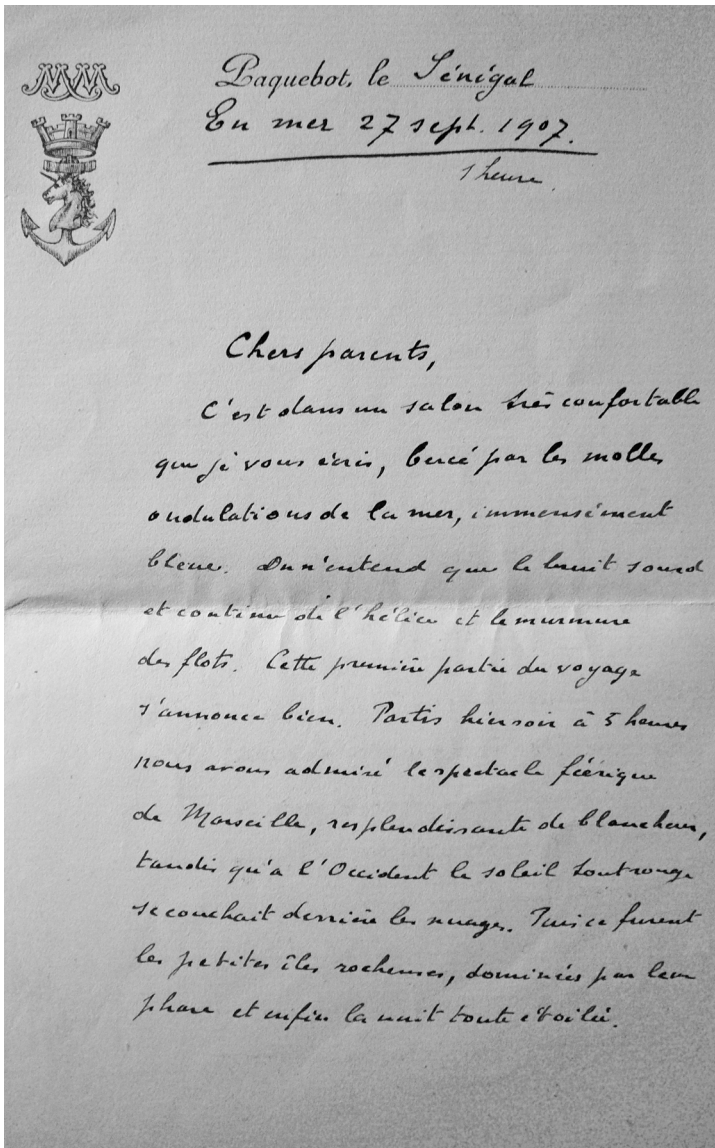 MM
Paquebot, le Sénégal
En mer 27 sept. 1907.
1 heure.
Chers parents,
C'est dans un salon très confortable
que je vous écris, bercé par les molles
ondulations de la mer, immensément
bleue. On n'entend que le bruit sourd
et continu de l'hélice et le murmure
des flots. Cette première partie du voyage
s'annonce bien. Partis hier soir à 5 heures
nous avons admiré le spectacle féerique
de Marseille, resplendissante de blancheur,
tandis qu'à l'Occident le soleil tout rouge
se couchait derrière les nuages. Puis ce furent
les petites îles rocheuses, dominées par leur
phare et enfin la nuit toute étoilée.